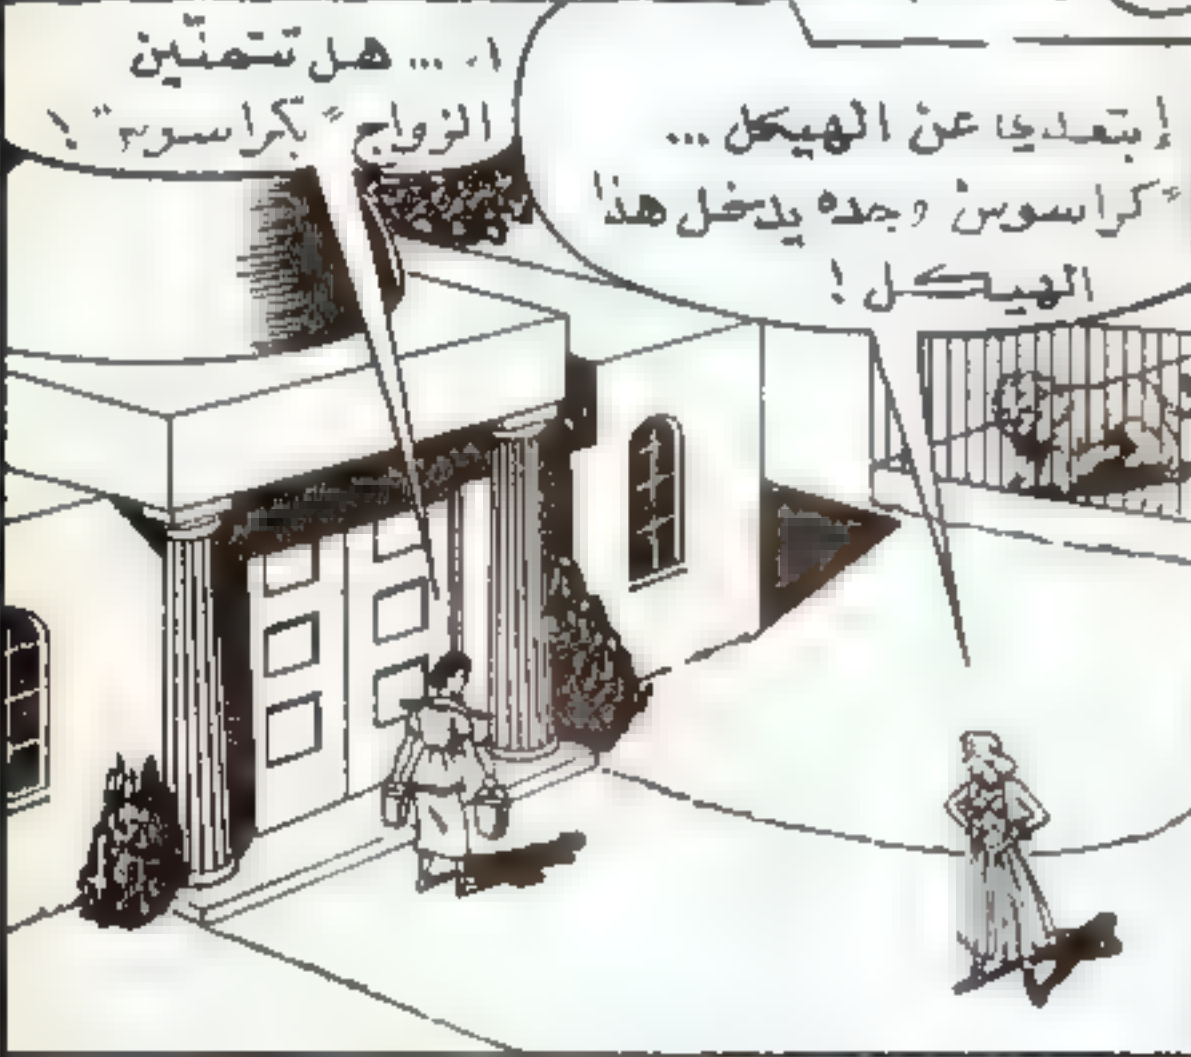 إبتعدي عن الهيكل ...
"كراسوس وحده يدخل هذا
الهيكل !
... هل تتمنّين
الزواج "بكراسوس" !